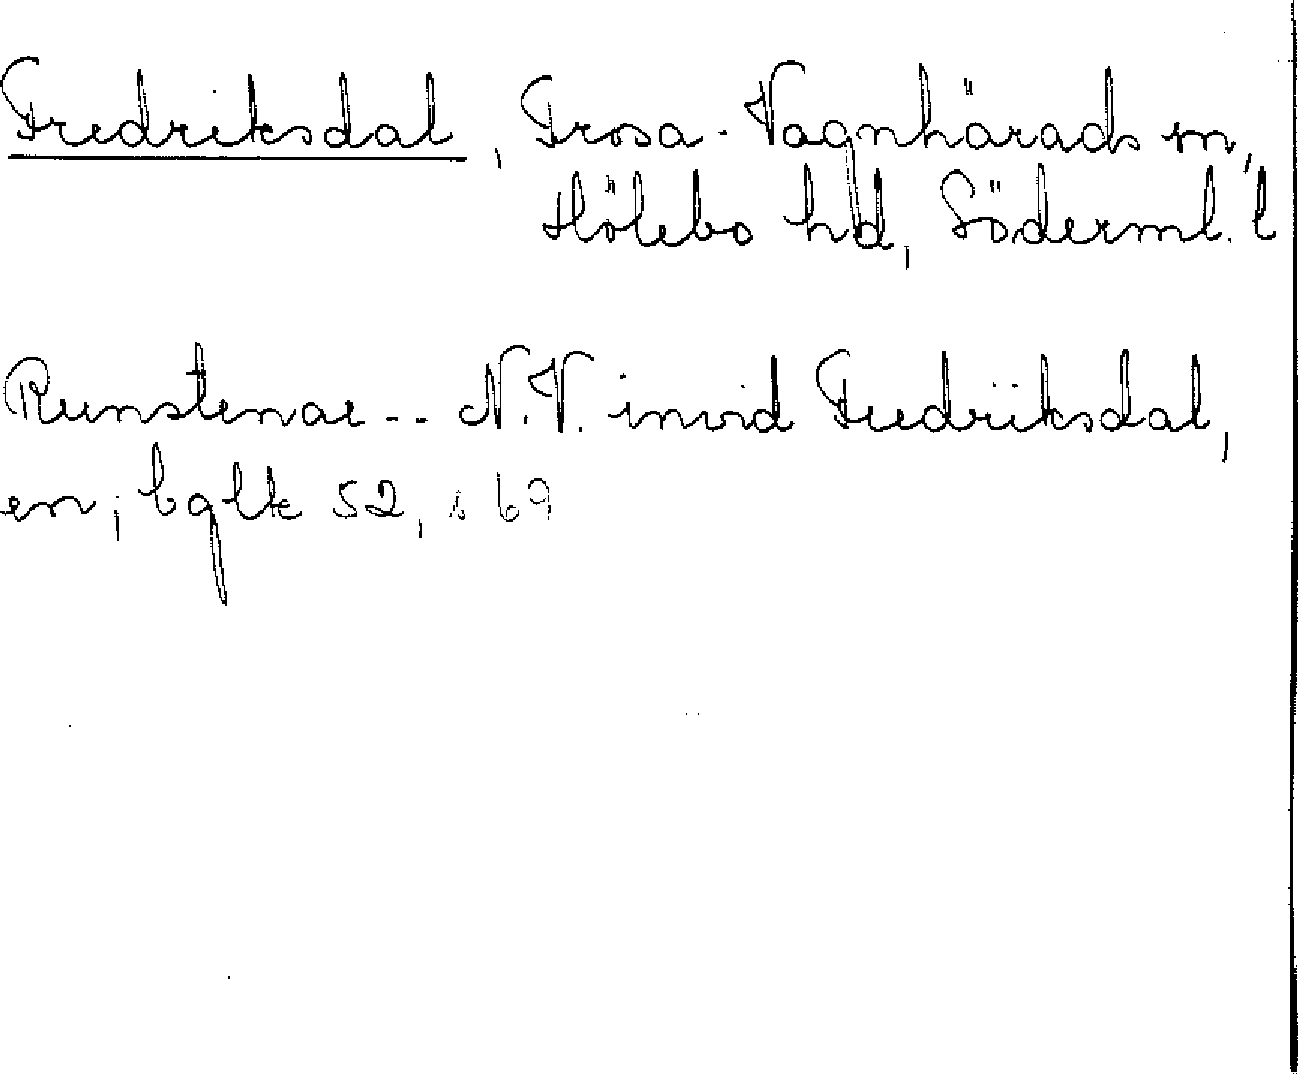 Fredriksdal, Trosa-Vagnhärads sn,
Hölebo hd, Söderml. l
Runstenar -- N.V. invid Fredriksdal,
en; bglk 52, s 69